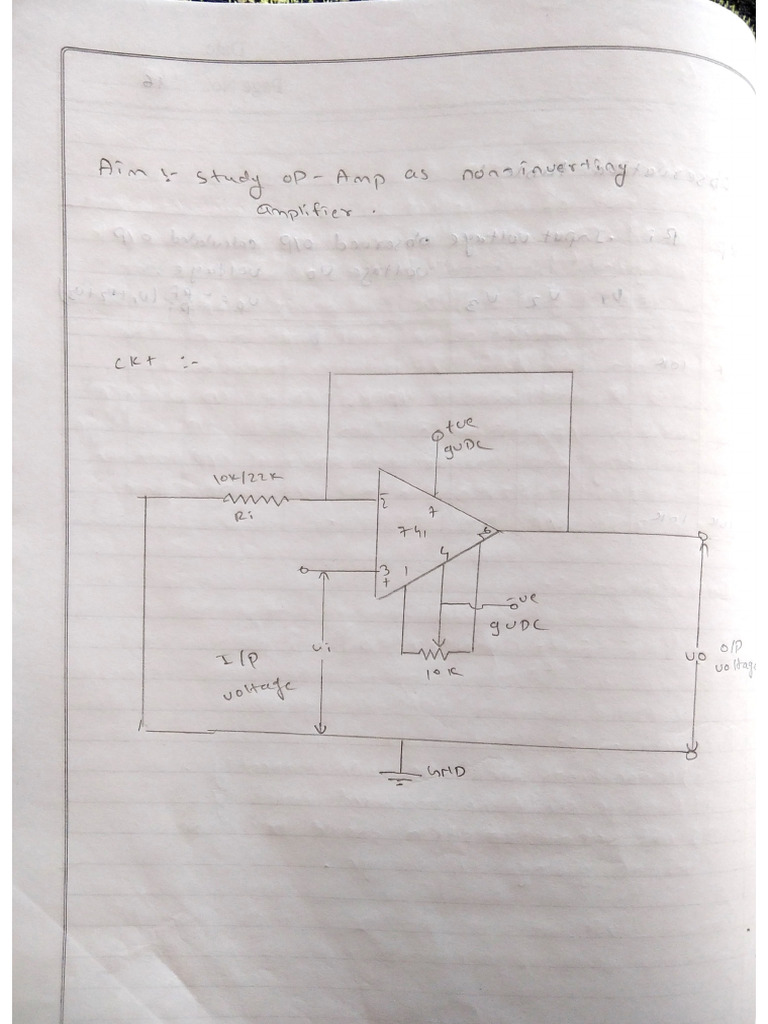 Aim :- study OP-Amp as non-inverting
amplifier.
CKt :-
+ve
9VDC
10K/22K
Ri
-
2
7
741
6
3
+
1
4
-ve
9VDC
10K
I/P
voltage
vi
vo
O/P
voltage
GND